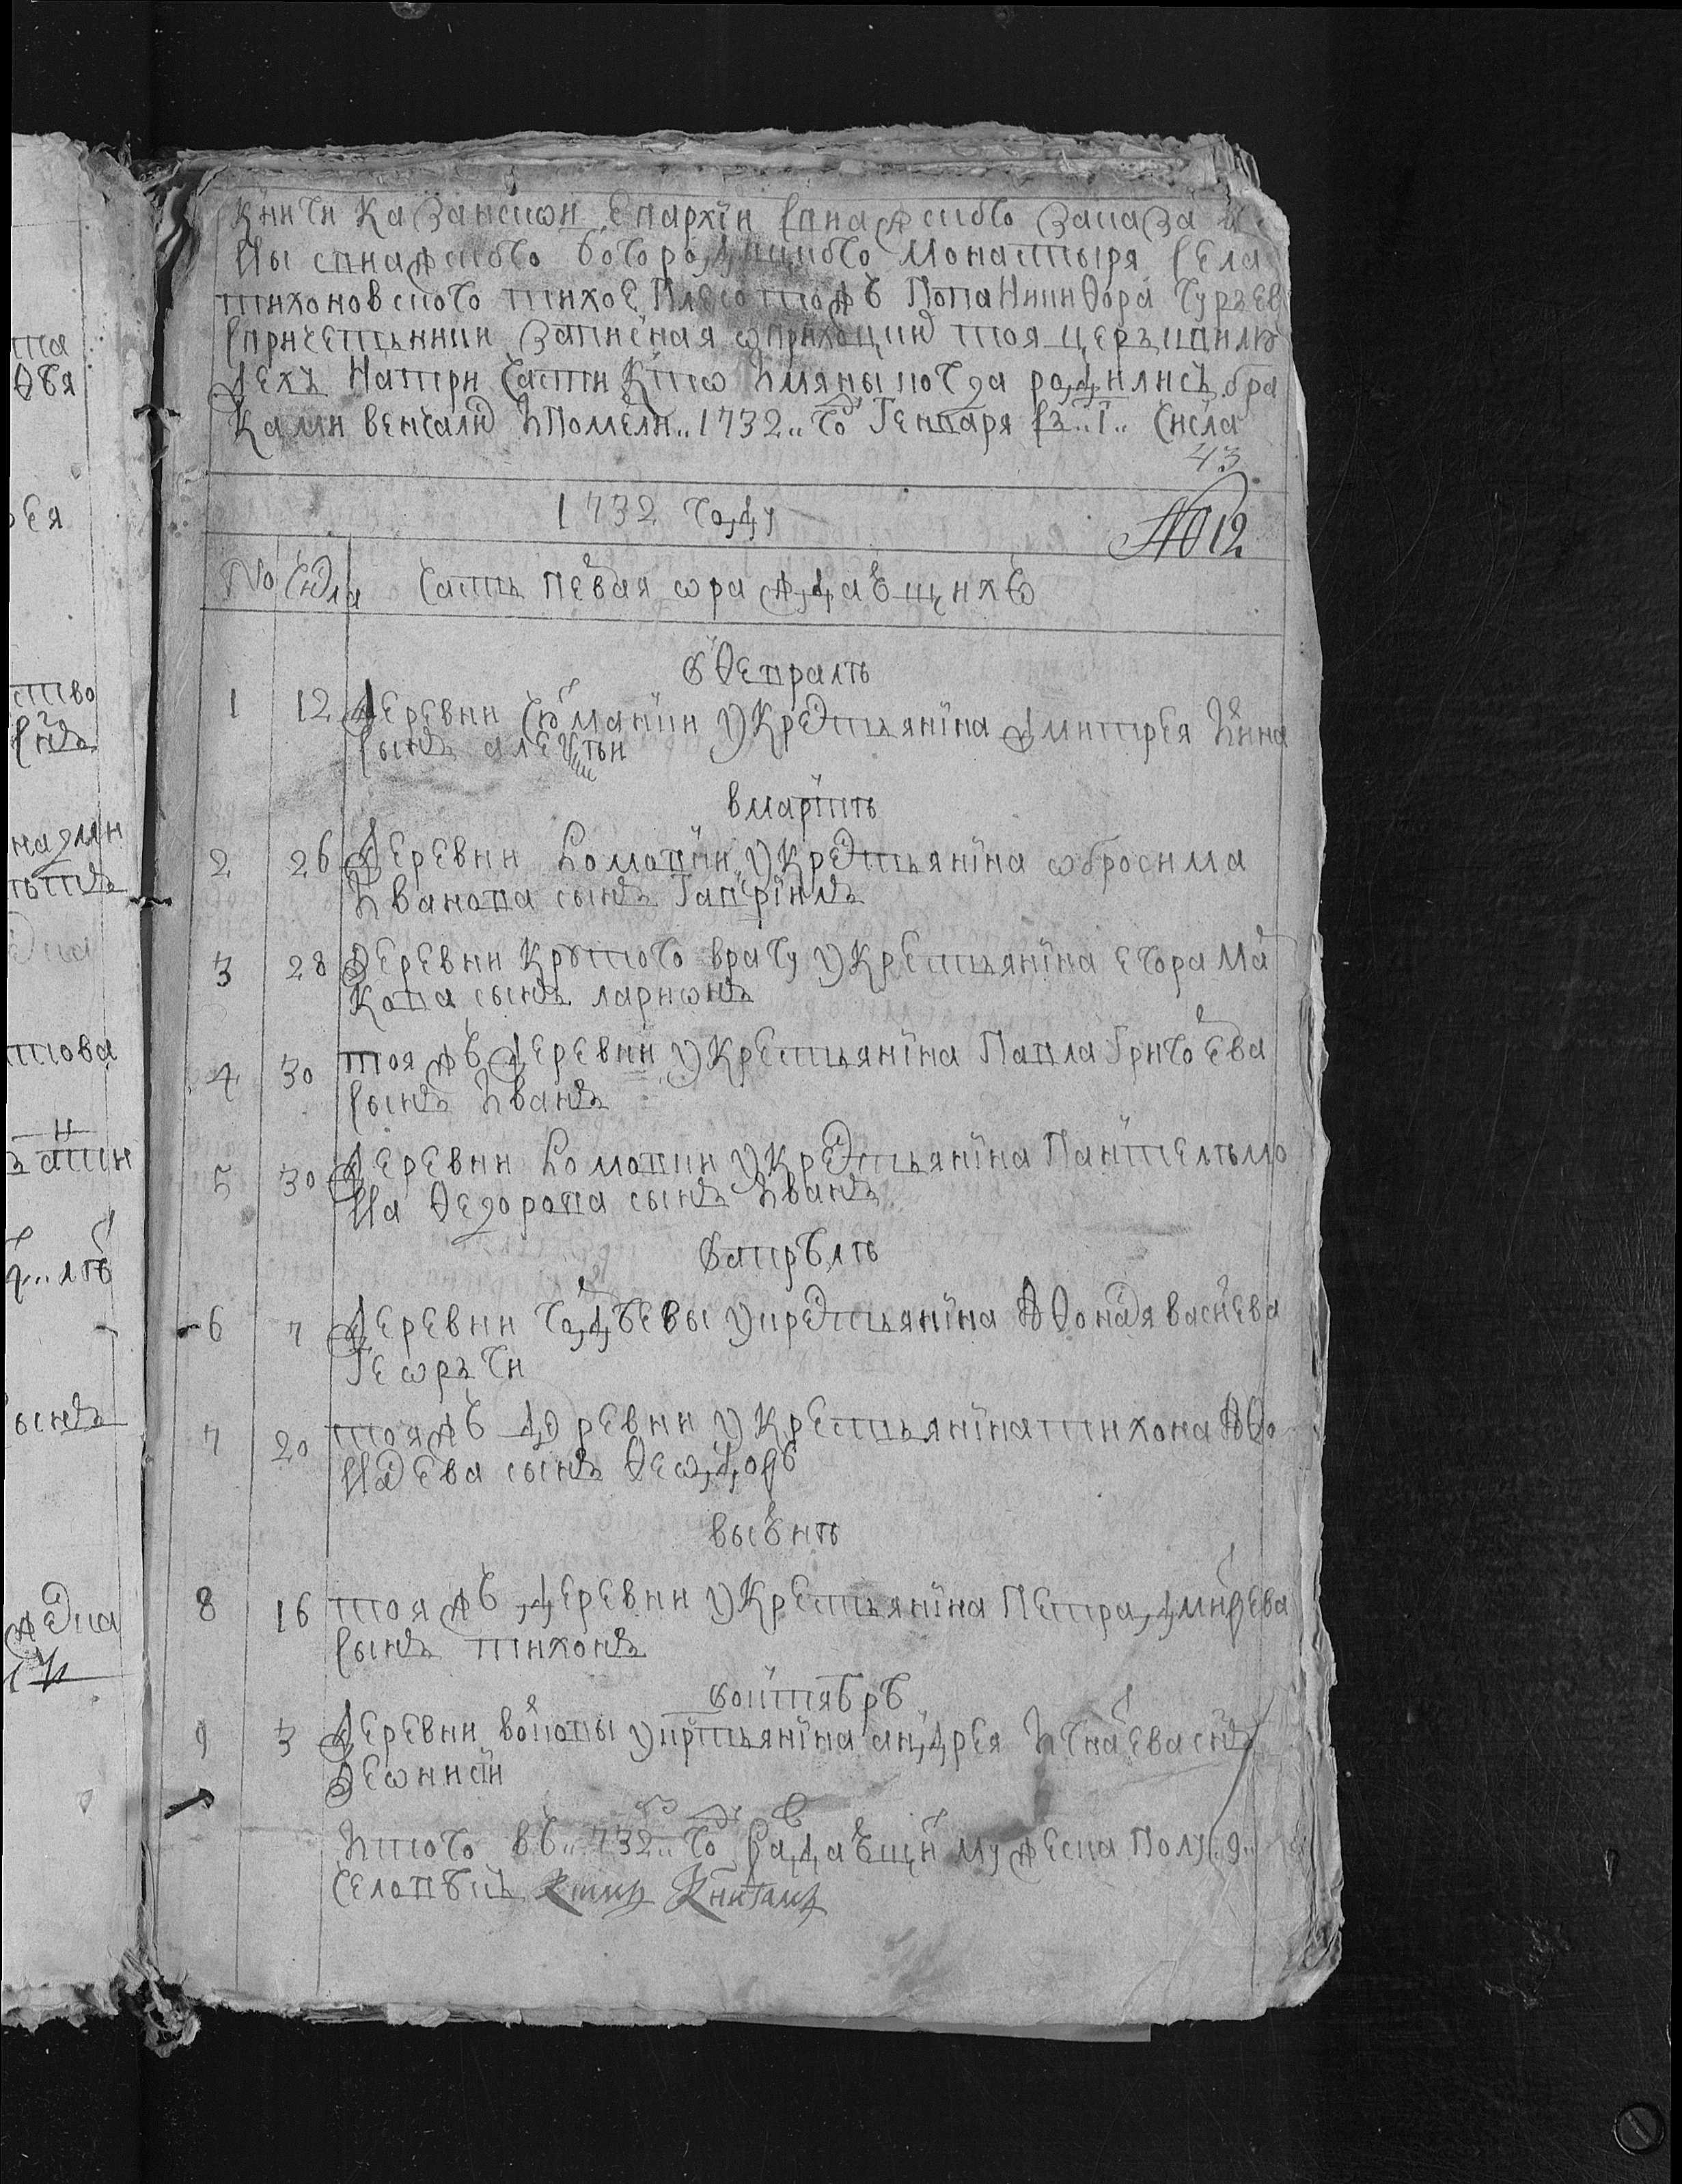 Книги Казанскои Епархіи Спнажского Заказа
ны спнажского богородицкого монастыря села
тихоновского тихое Плесо тожъ Попа Никифора гурьев
Спричетьники Записная оприходцкихъ тоя церкьви лю
дехъ На три части кто имяны когда родились бра
ками венчались и Померли 1732 го Генваря съ 1 числа
43
1732 году
№ 12
№ числа часть Первая о раждающихся
в Февралѣ
1 12 Деревни у Крестьянина дмитрея
сынъ алеѯѣи
в мартѣ
2 26 Деревни Ломовки у Крестьянина Обросима
Иванова сынъ Гаврiилъ
3 28 Деревни Крутого врагу у Крестьянина егора Ма
кова сынъ ларионъ
4 30 тояжъ Деревни у Крестьянина Павла Григоръева
Сынъ Иванъ
5 30 Деревни Ломовки у Крестьянина Пантелѣмо
на Ѳедорова сынъ Иванъ
в апрѣлѣ
6 7 Деревни у крестьянина Аѳонасья васильева
Георъги
7 20 тояжъ Деревни у Крестьянина тихона Аѳо
насьева сынъ Ѳеодоръ
8 16 тояжъ Деревни у Крестьянина Петра дмитрева
сынъ тихонъ
в октябрѣ
9 3 Деревни у крестьянина андрея Игнатева снъ
Деонисiи
Итого въ 732 го раждающихся мужеска Полу 9
человѣкъ